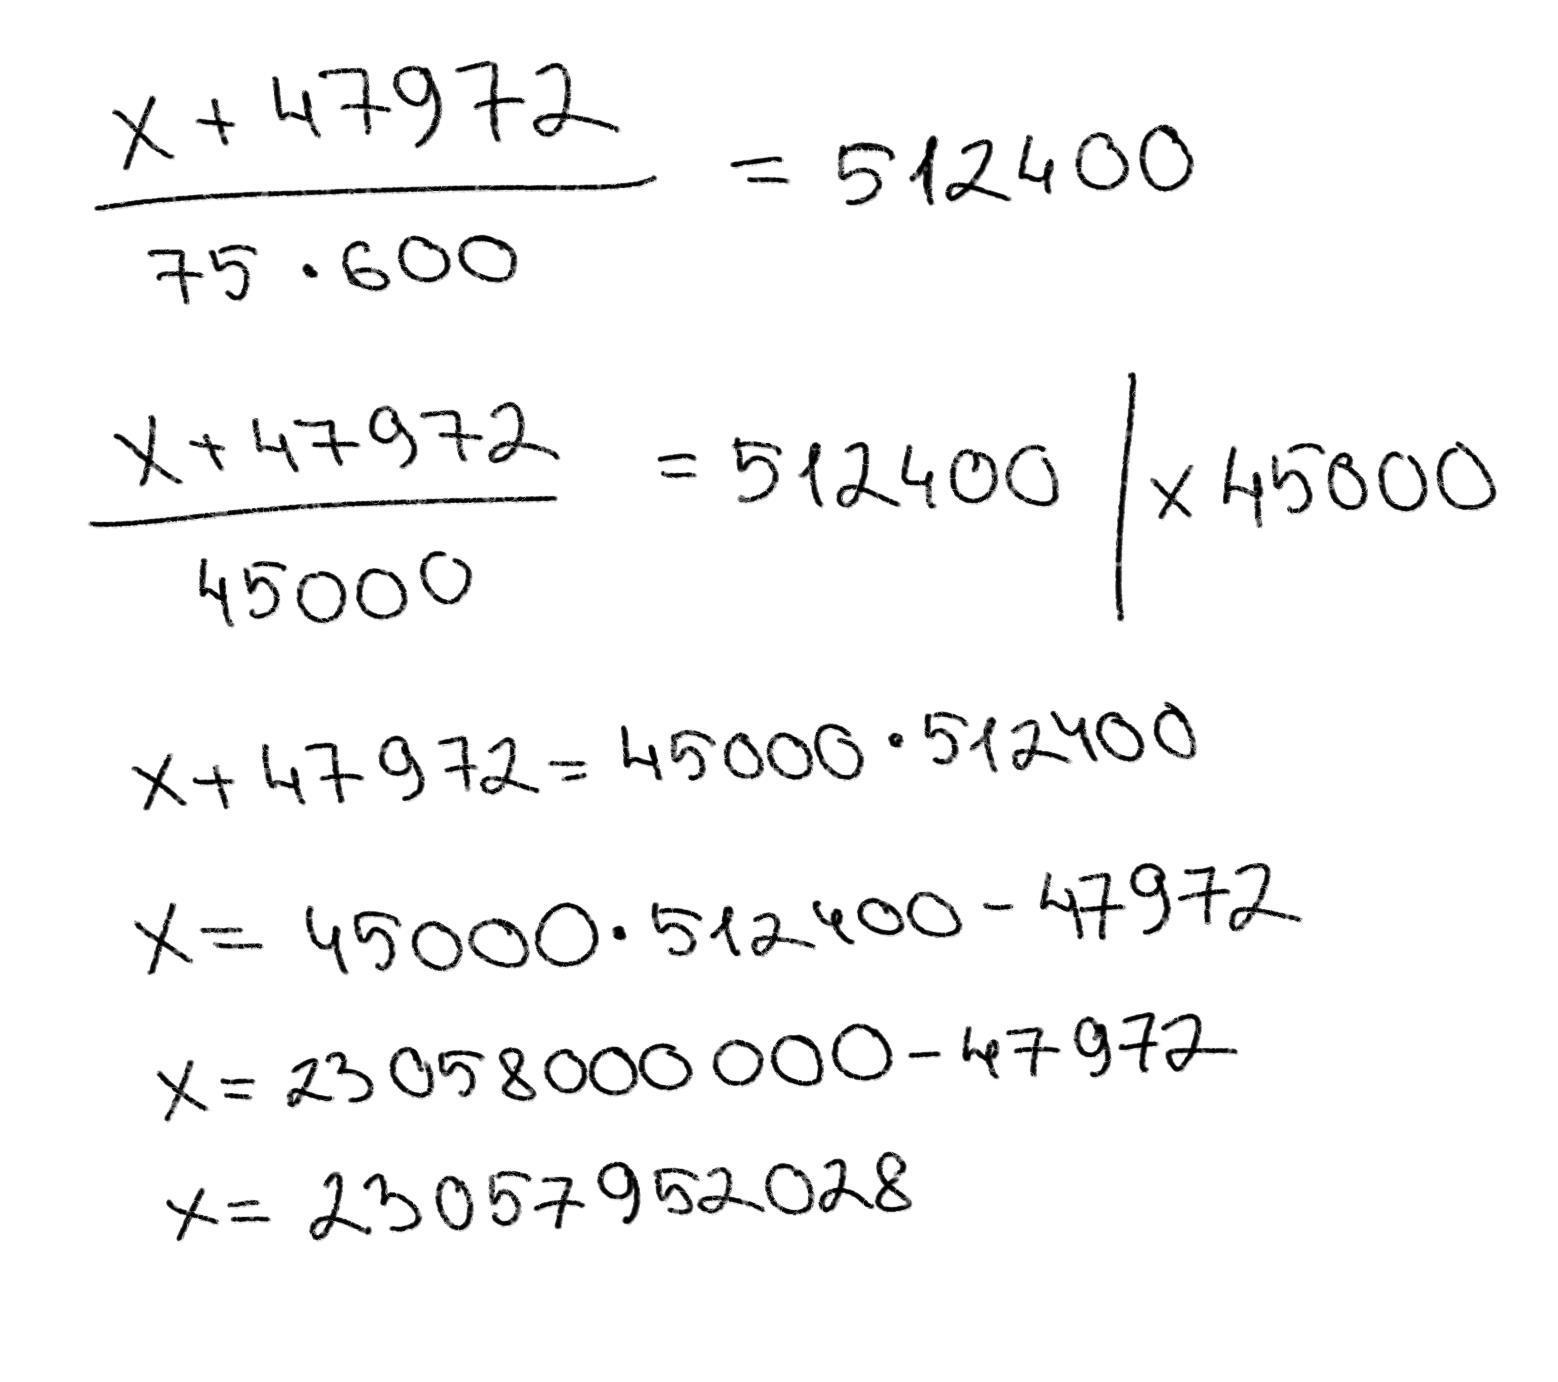 x + 47972
= 512400
75 · 600
x + 47972
= 512400 | x 45000
45000
x + 47972 = 45000 · 512400
x = 45000 · 512400 - 47972
x = 23058000000 - 47972
x = 23057952028